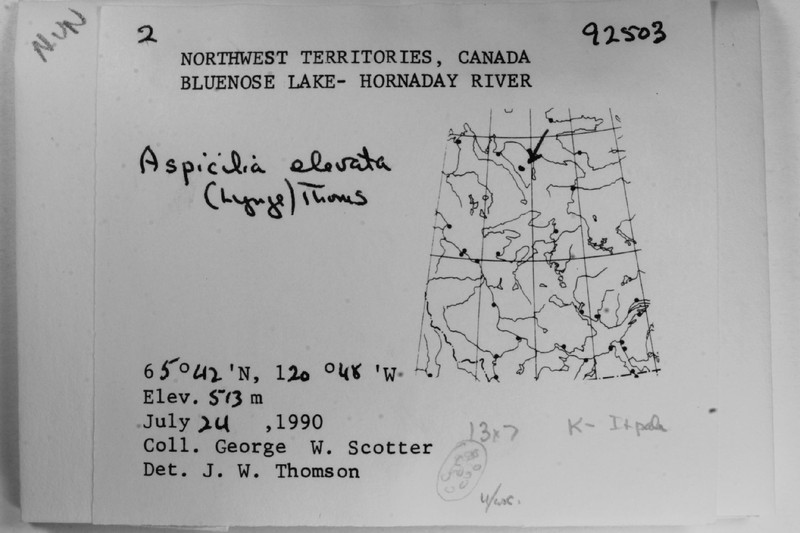 NUN
2
92503
NORTHWEST TERRITORIES, CANADA
BLUENOSE LAKE- HORNADAY RIVER
Aspicilia elevata
(Lynge) Thoms
65°42'N, 120°48'W
Elev. 513 m
July 24 ,1990
Coll. George W. Scotter
Det. J. W. Thomson
13x7
K-